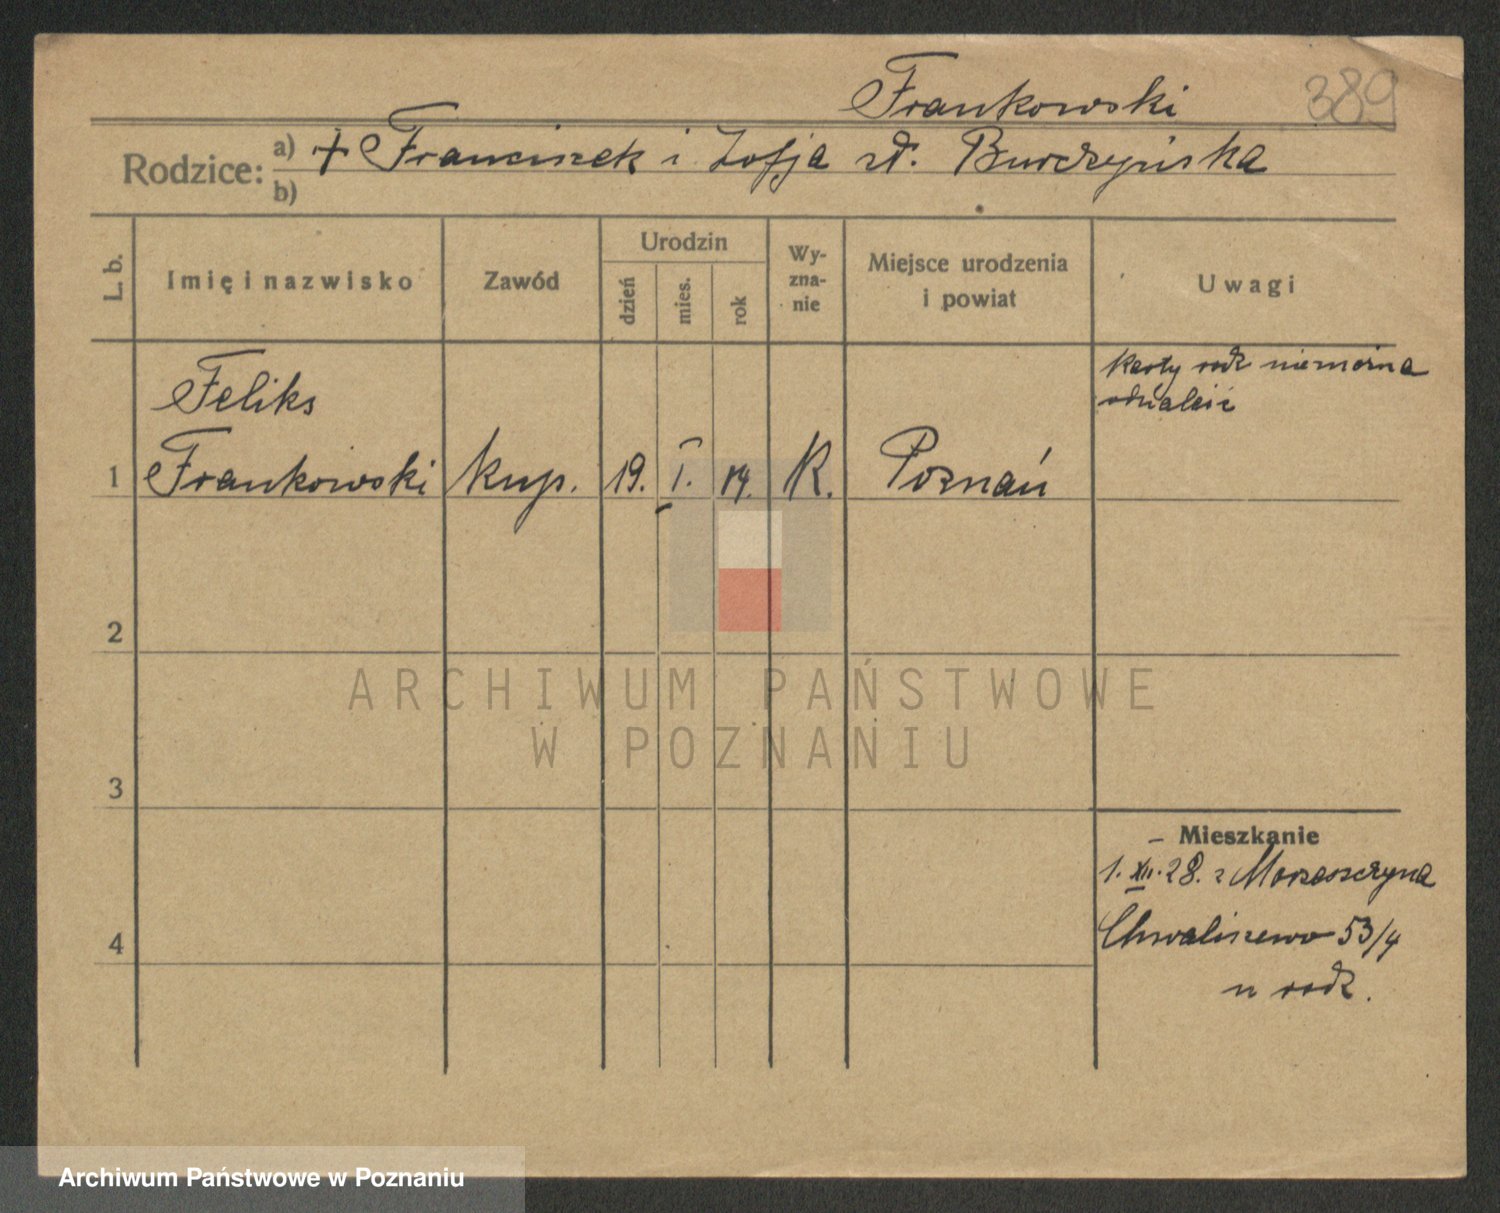 Frankowski 389
Rodzice: a) + Franciszek i Zofja zd. Burczyńska
b)
L. b.
Imię i nazwisko
Zawód
Urodzin
dzień
mies.
rok
Wy-
zna-
nie
Miejsce urodzenia
i powiat
Uwagi
karty rodz niemożna
odnaleść
Feliks
1 Frankowski kup. 19. I. 14. K. Poznań
2
ARCHIWUM PAŃSTWOWE
W POZNANIU
3
Mieszkanie
1. XII. 28. z
4 Chwaliszewo 53/4
u rodz.
Archiwum Państwowe w Poznaniu